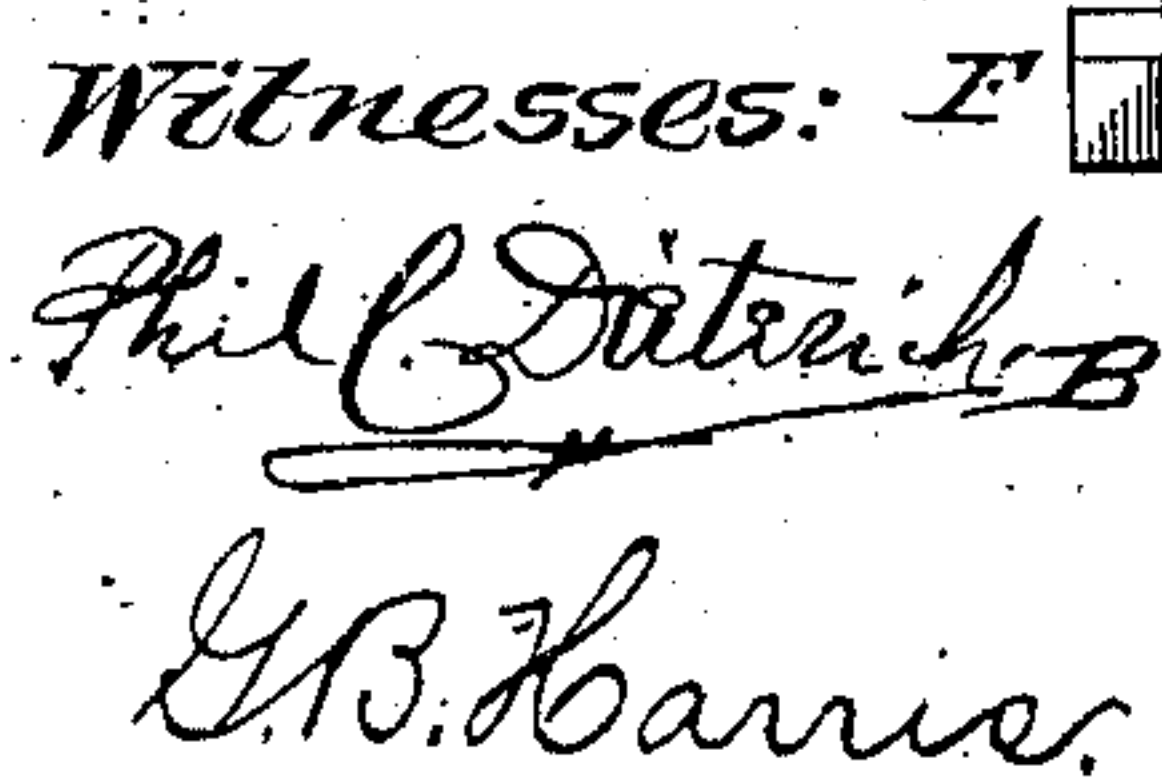 Witnesses: F
Phil C. Dieterich B
G. B. Harris.